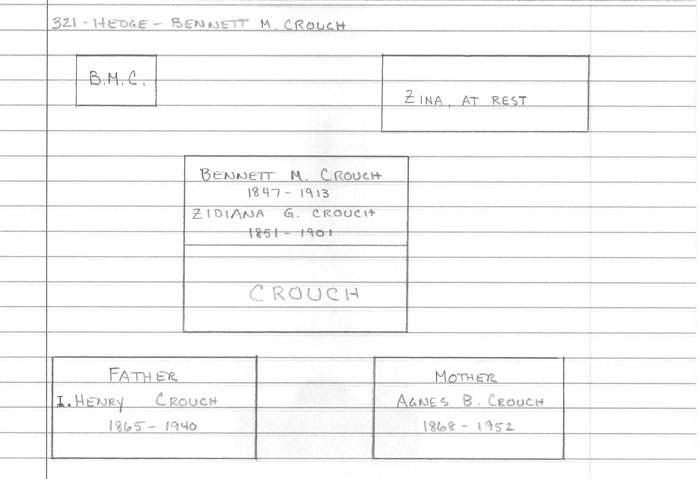 321 - HEDGE - BENNETT M. CROUCH
B.M.C.
ZINA, AT REST
BENNETT M. CROUCH
1847 - 1913
ZIDIANA G. CROUCH
1851 - 1901
CROUCH
FATHER
I. HENRY CROUCH
1865 - 1940
MOTHER
AGNES B. CROUCH
1868 - 1952